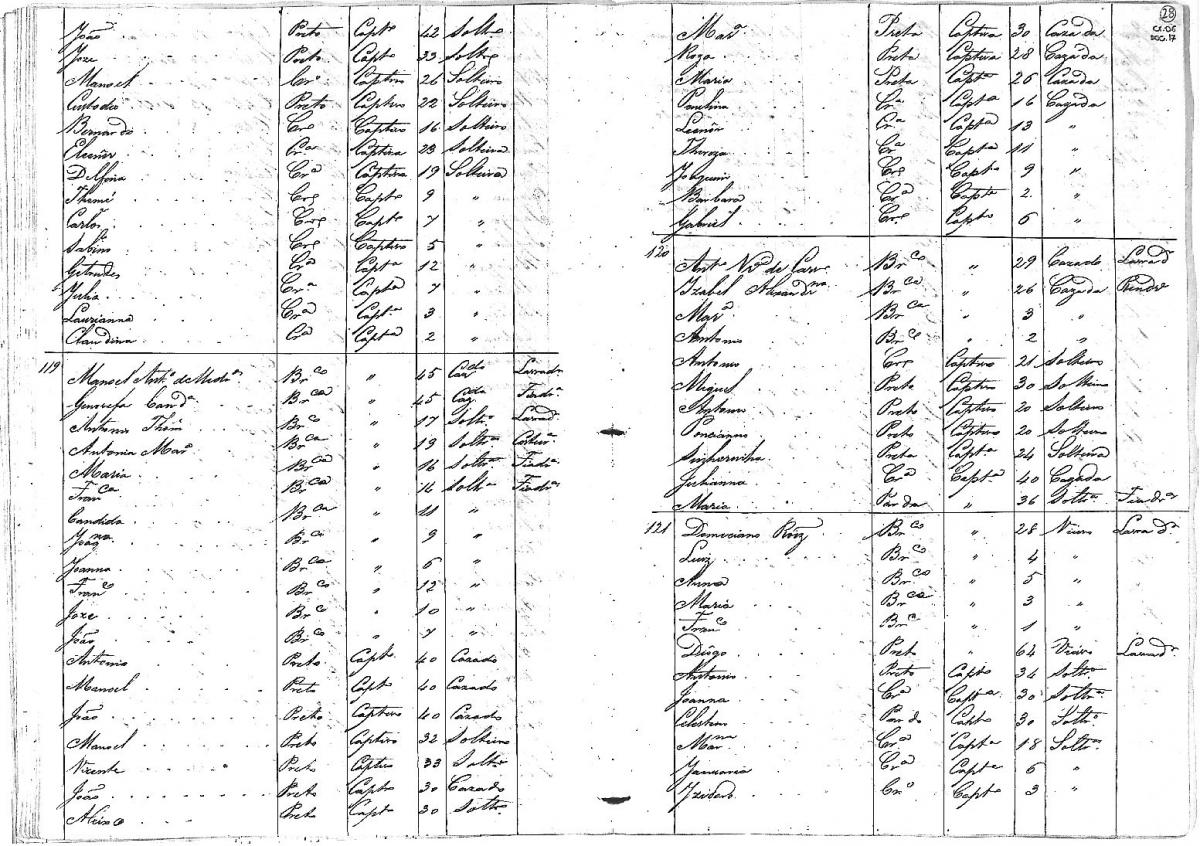 João Preto Capto 42 Solto
Joze Preto Capto 33 Solto
Manoel Cro Captivo 26 Solteiro
Custodio Preto Captivo 22 Solteiro
Bernardo Cro Captivo 16 Solteiro
Cra Captiva 23 Solteira
Delfina Cra Captiva 19 Solteira
Thomé Cro Capto 9 "
Carlos Cro Capto 7 "
Sabino Cro Captivo 5 "
Cra Capta 12 "
Julia Cra Capta 7 "
Laurianna Cra Capta 3 "
Claudina Cra Capta 2 "
119 Manoel Anto de Brco " 45 Cazdo Lavrador
Genovefa Candа Brca " 45 Cazda Fiada
Antonio Brco " 17 Solto Lavrado
Antonia Mara Brca " 19 Solta
Maria Brca " 16 Solta Fiada
Franca Brca " 14 Solta Fiada
Candida Brca " 11 "
Joaqna Brca " 9 "
Joanna Brca " 6 "
Franco Brco " 12 "
Joze Brco " 10 "
João Brco " 7 "
Antonio Preto Capto 40 Cazado
Manoel Preto Capto 40 Cazado
João Preto Captivo 40 Cazado
Manoel Preto Captivo 32 Solteiro
Vicente Preto Captivo 33 Solto
João Preto Capto 30 Cazado
Aleixo Preto Capto 30 Solto
28
CX.06
DOC.17
Mara Preta Captiva 30 Cazada
Roza Preta Captiva 28 Cazada
Maria Preta Capta 26 Cazada
Cra Capta 16 Cazada
Leonor Cra Capta 13 "
Thereza Cra Capta 11 "
Joaquim Cro Capto 9 "
Barbara Cra Capta 2 "
Gabriel Cro Capto 6 "
120 Anto de Brco " 29 Cazado Lavrado
Izabel Alexandrina Brca " 26 Cazada
Mara Brca " 3 "
Antonio Brco " 2 "
Antonio Cro Captivo 21 Solteiro
Miguel Preto Captivo 30 Solteiro
Antonio Preto Captivo 20 Solteiro
Poncianno Preto Captivo 20 Solteiro
Preta Capta 24 Solteira
Julianna Cra Capta 40 Cazada
Maria Parda " 36 Solta Fiada
121 Domiciano Roiz Brco " 28 Viuvo Lavrado
Luiz Brco " 4 "
Anna Brca " 5 "
Maria Brca " 3 "
Franco Brco " 1 "
Diogo Preto " 64 Viuvo Lavrado
Antonio Preto Capto 34 Solto
Joanna Cra Capta 30 Solta
Celestino Pardo Capto 30 Solto
Marna Cra Capta 18 Solta
Januaria Cra Capta 6 "
Izidoro Cro Capto 3 "